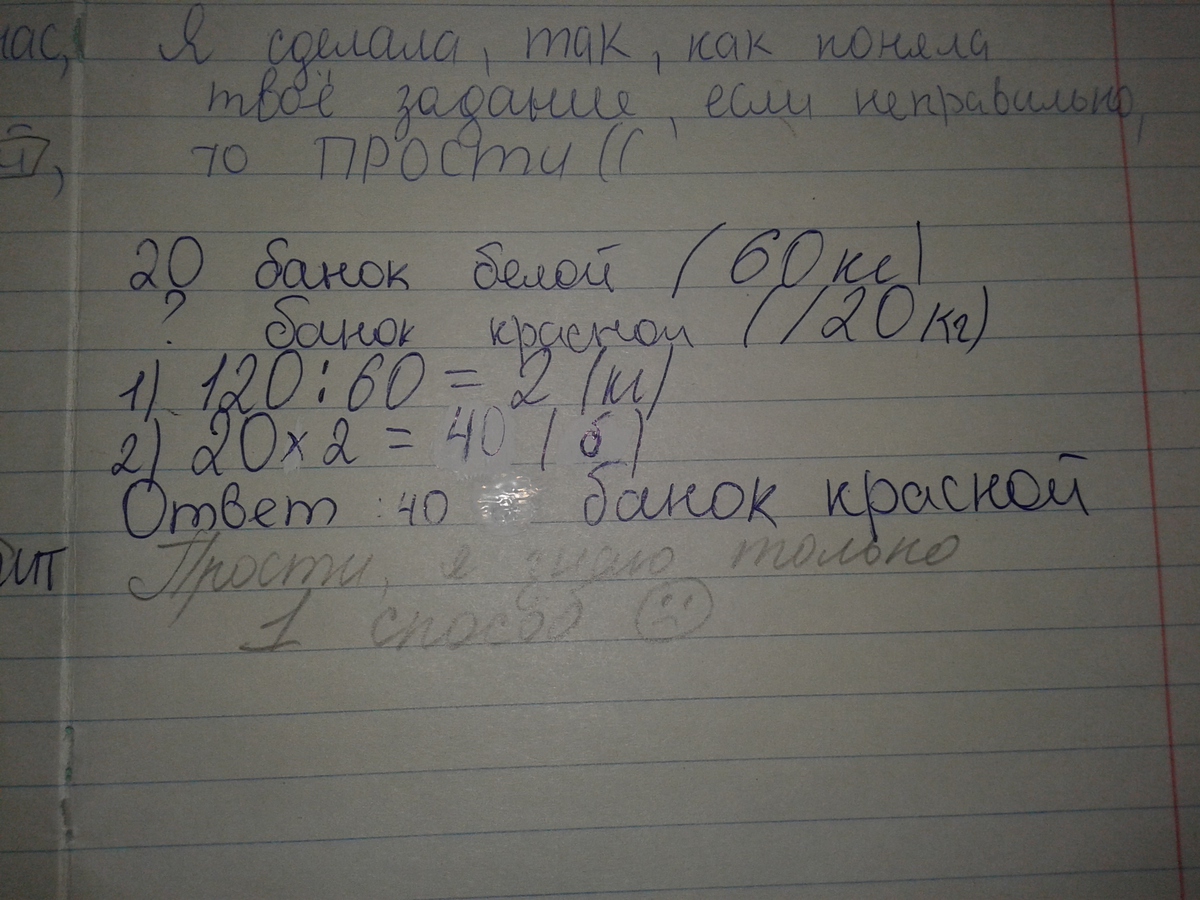 нас, Я сделала, так, как поняла
твоё задание, если неправильно,
то ПРОСТИ ((
20 банок белой (60 кг)
? банок красной (120 кг)
1) 120 : 60 = 2 (кг)
2) 20 x 2 = 40 (б)
Ответ : 40 банок красной
Прости, я знаю только
1 способ